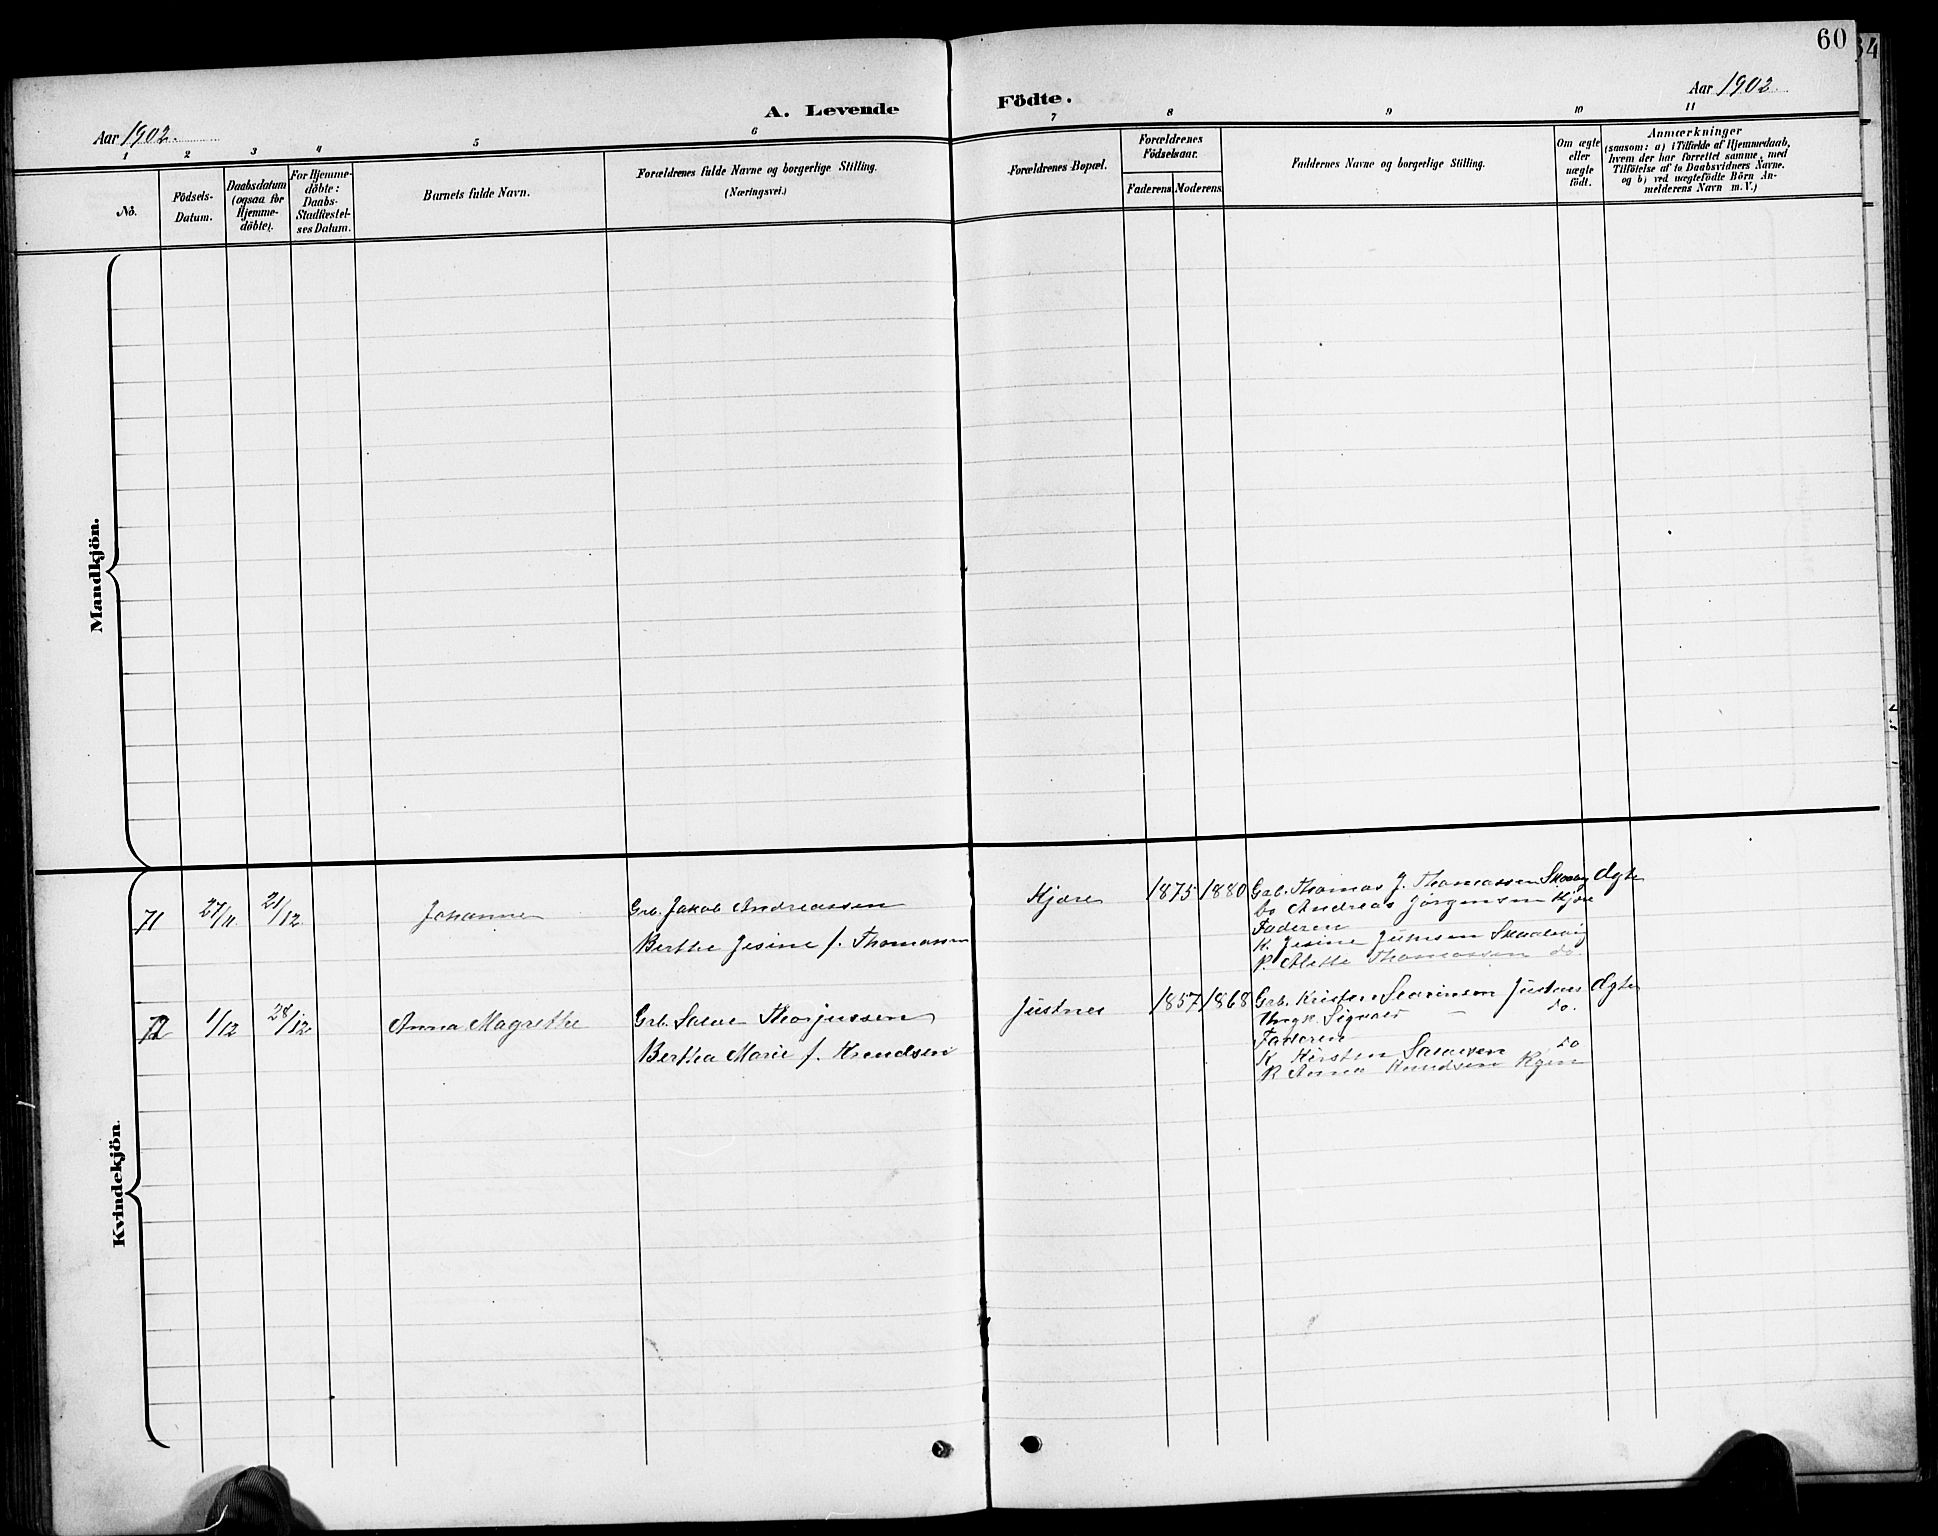 60
34
A. Levende Födte.
Aar 1902.
Aar 1902.
1 2 3 4 5 6 7 8 9 10 11
No.
Födsels-
Datum.
Daabsdatum
(ogsaa for
Hjemme-
döbte).
For Hjemme-
döbte:
Daabs-
Stadfæstel-
ses Datum.
Barnets fulde Navn.
Forældrenes fulde Navne og borgerlige Stilling.
(Næringsvei.)
Forældrenes Bopæl.
Forældrenes
Födselsaar.
Faderens Moderens
Faddernes Navne og borgerlige Stilling.
Om ægte
eller
uægte
födt.
Anmærkninger
(saasom: a) i Tilfælde af Hjemmedaab,
hvem der har forrettet samme, med
Tilföielse af to Daabsvidners Navne.
og b) ved uægtefödte Börn An-
melderens Navn m. V.)
Mandkjön.
Kvindekjön.
71
27/11
21/12
Johanne
Grb. Jakob Andreassen
Berthe Jesine f. Thomassen
Kjære
1875 1880
Grb. Thomas J. Thomassen
Andreas Jörgensen Kjære
Faderen
K. Jesine
P. Mette Thomassen do.
Ægte
72
1/12
28/12
Anna Magrethe
Grb. Salve Thorjussen
Berthea Marie f. Knudsen
Justnes
1857 1868
Grb. Kristen Severinsen Justnes
Ungk. Sigvald — do.
Faderen
K. Kirsten Salvesen do
P. Anna Knudsen
Ægte